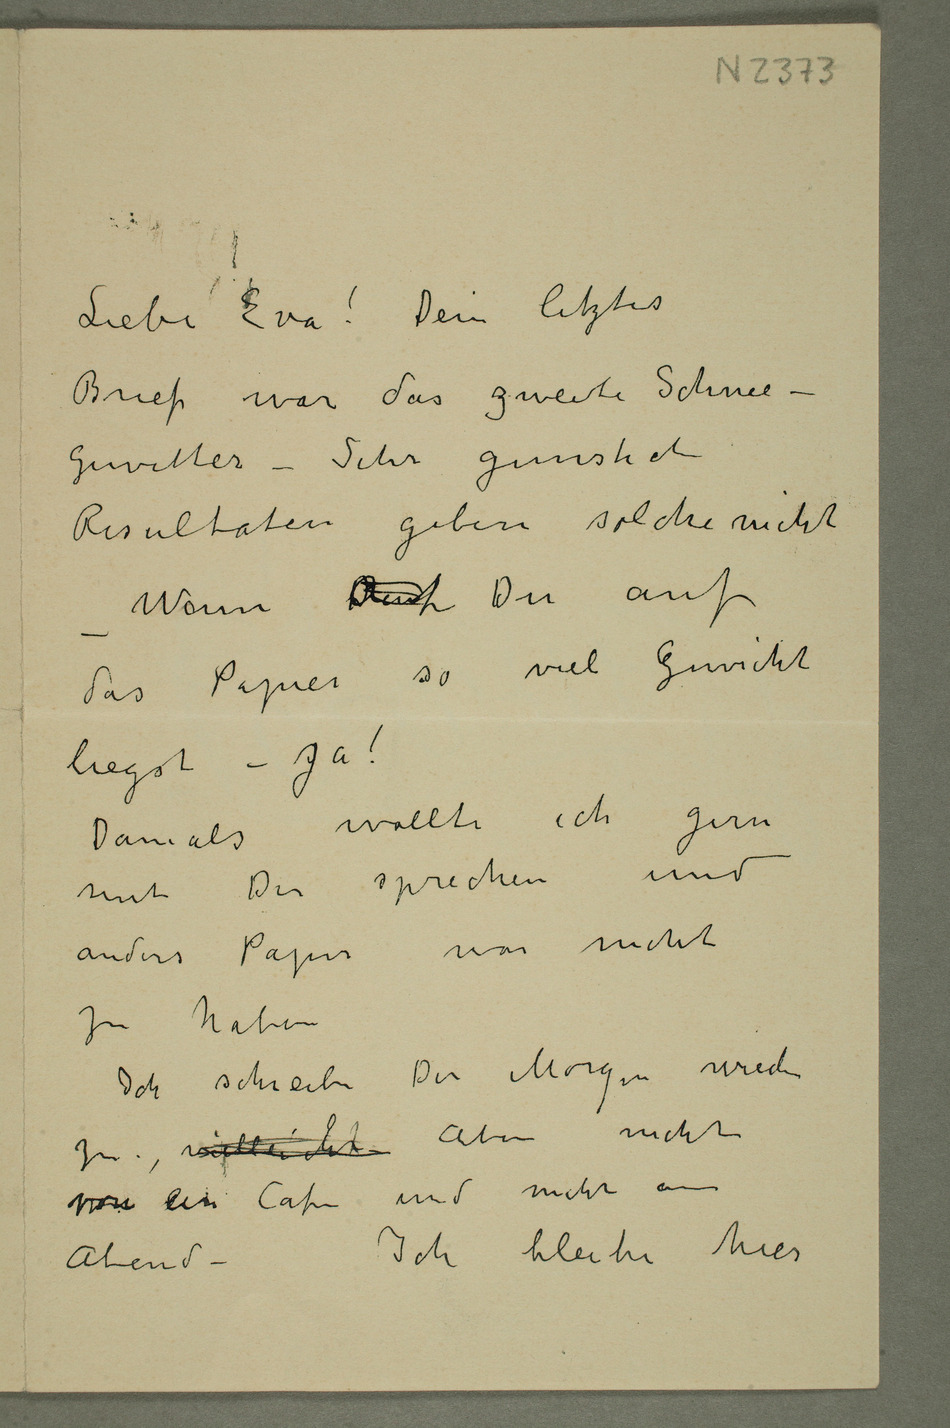 N 2373
Liebe Eva! Dein letztes
Brief war das zweite Schnee-
Gewitter – Sehr gunstich
Resultaten geben solche nicht
– Wenn Du auf
das Papier so viel Gewicht
liegst – Ja!
Damals wollte ich gern
mit Dir sprechen und
anders Papier war nicht
zu haben
Ich schreibe Dir Morgen wieder
zu., vielleicht Aber nicht
von ein Cafe und nicht am
Abend – Ich bleibe hier